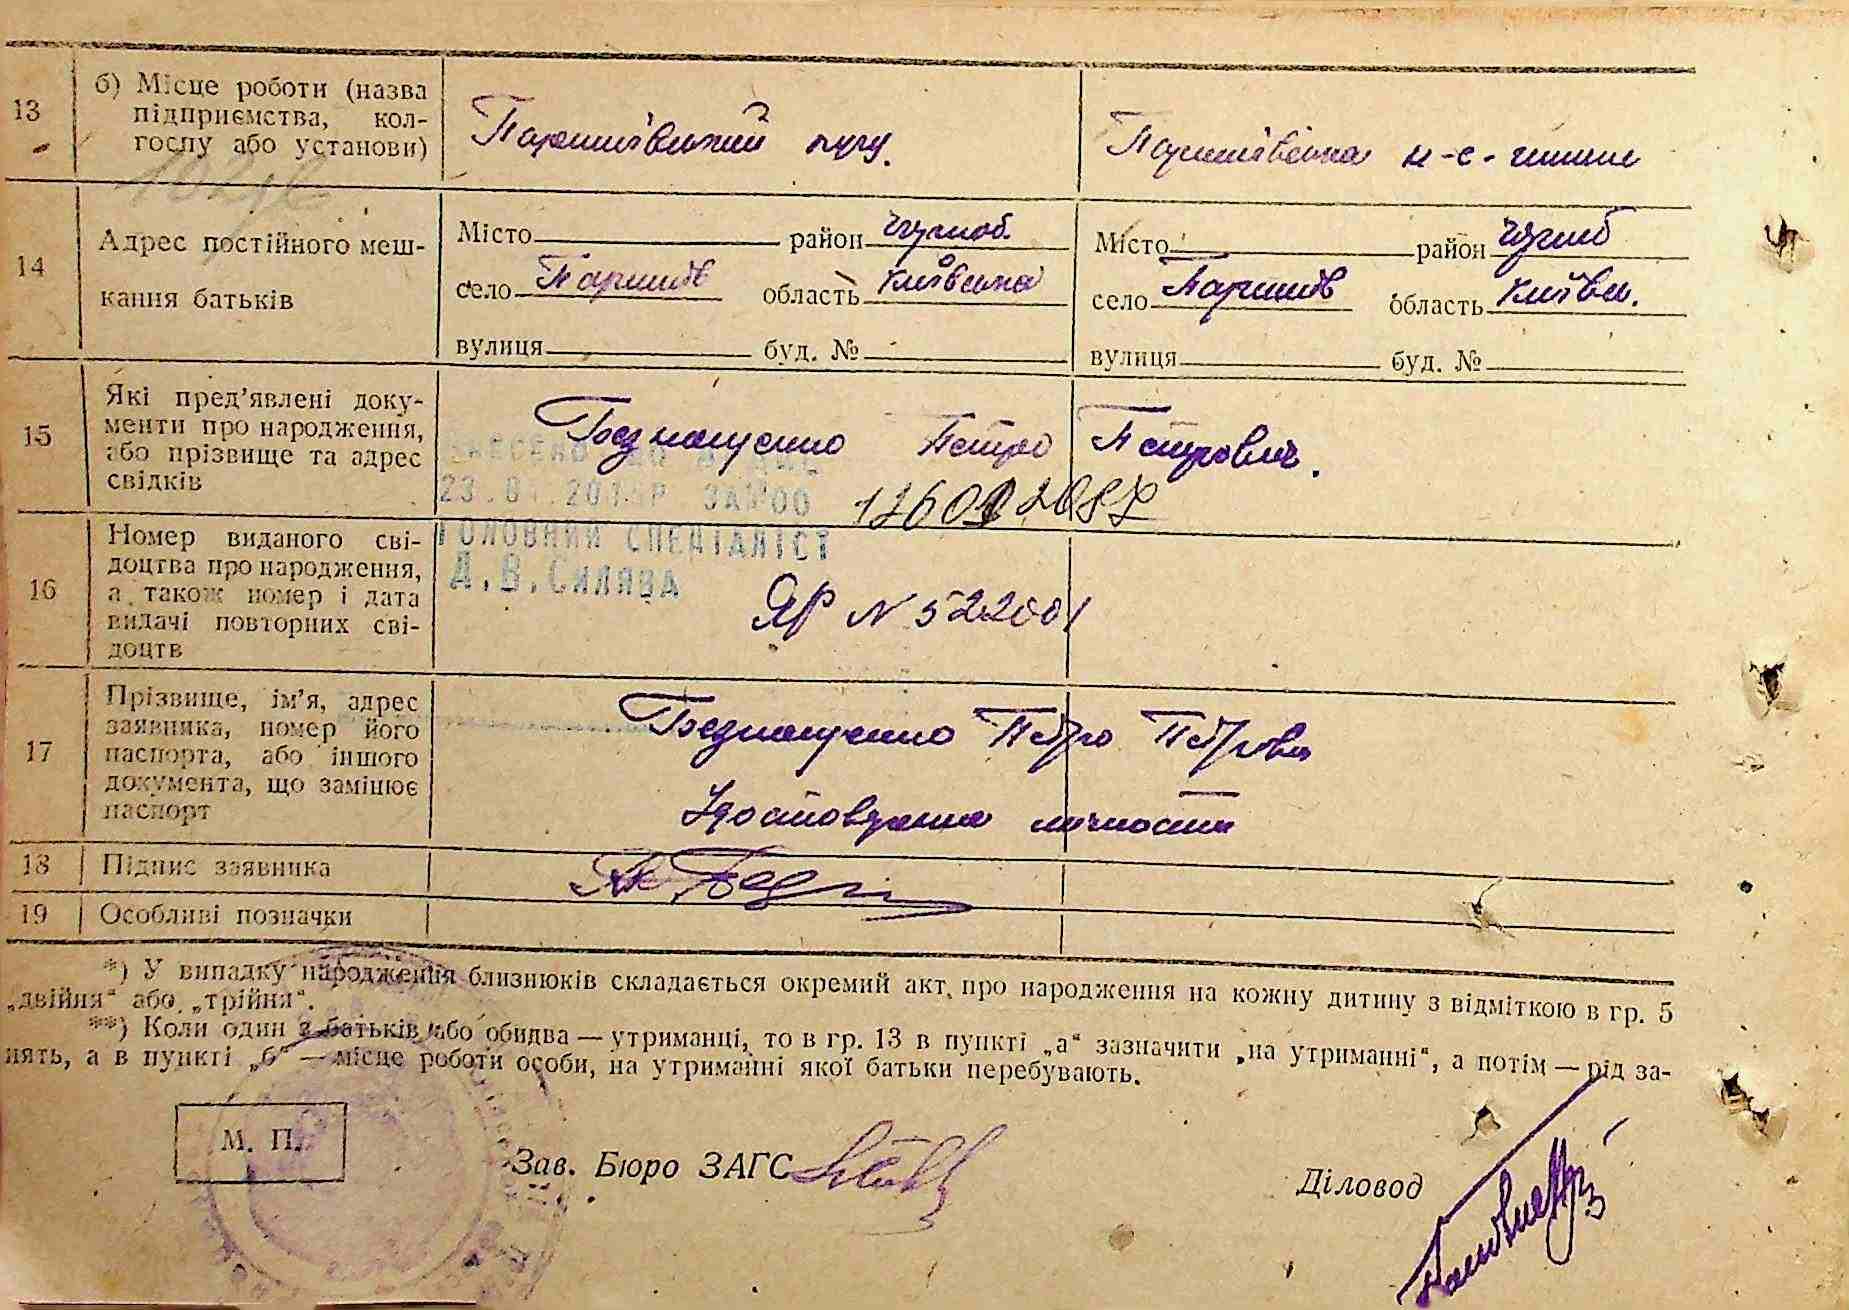 13
б) Місце роботи (назва
підприємства, кол-
госпу або установи)
Паришівський
Паришівська н-с-
14
Адрес постійного меш-
кання батьків
Місто район Чорноб.
село Паришів область Київська
вулиця буд. №
Місто район Чорноб
село Паришів область Київськ.
вулиця буд. №
15
Які пред'явлені доку-
менти про народження,
або прізвище та адрес
свідків
Петро Петрович.
ГОЛОВНИЙ СПЕЦІАЛІСТ
Д.В.СИЛЯВА
16
Номер виданого сві-
доцтва про народження,
а також номер і дата
видачі повторних сві-
доцтв
ЯР N 522001
17
Прізвище, ім'я, адрес
заявника, номер його
паспорта, або іншого
документа, що замінює
паспорт
Петро Петрови
личности
18
Підпис заявника
19
Особливі позначки
*) У випадку народження близнюків складається окремий акт про народження на кожну дитину з відміткою в гр. 5
„двійня“ або „трійня“.
**) Коли один з батьків або обидва — утриманці, то в гр. 13 в пункті „а“ зазначити „на утриманні“, а потім — рід за-
нять, а в пункті „б“ — місце роботи особи, на утриманні якої батьки перебувають.
М. П.
Зав. Бюро ЗАГС
Діловод